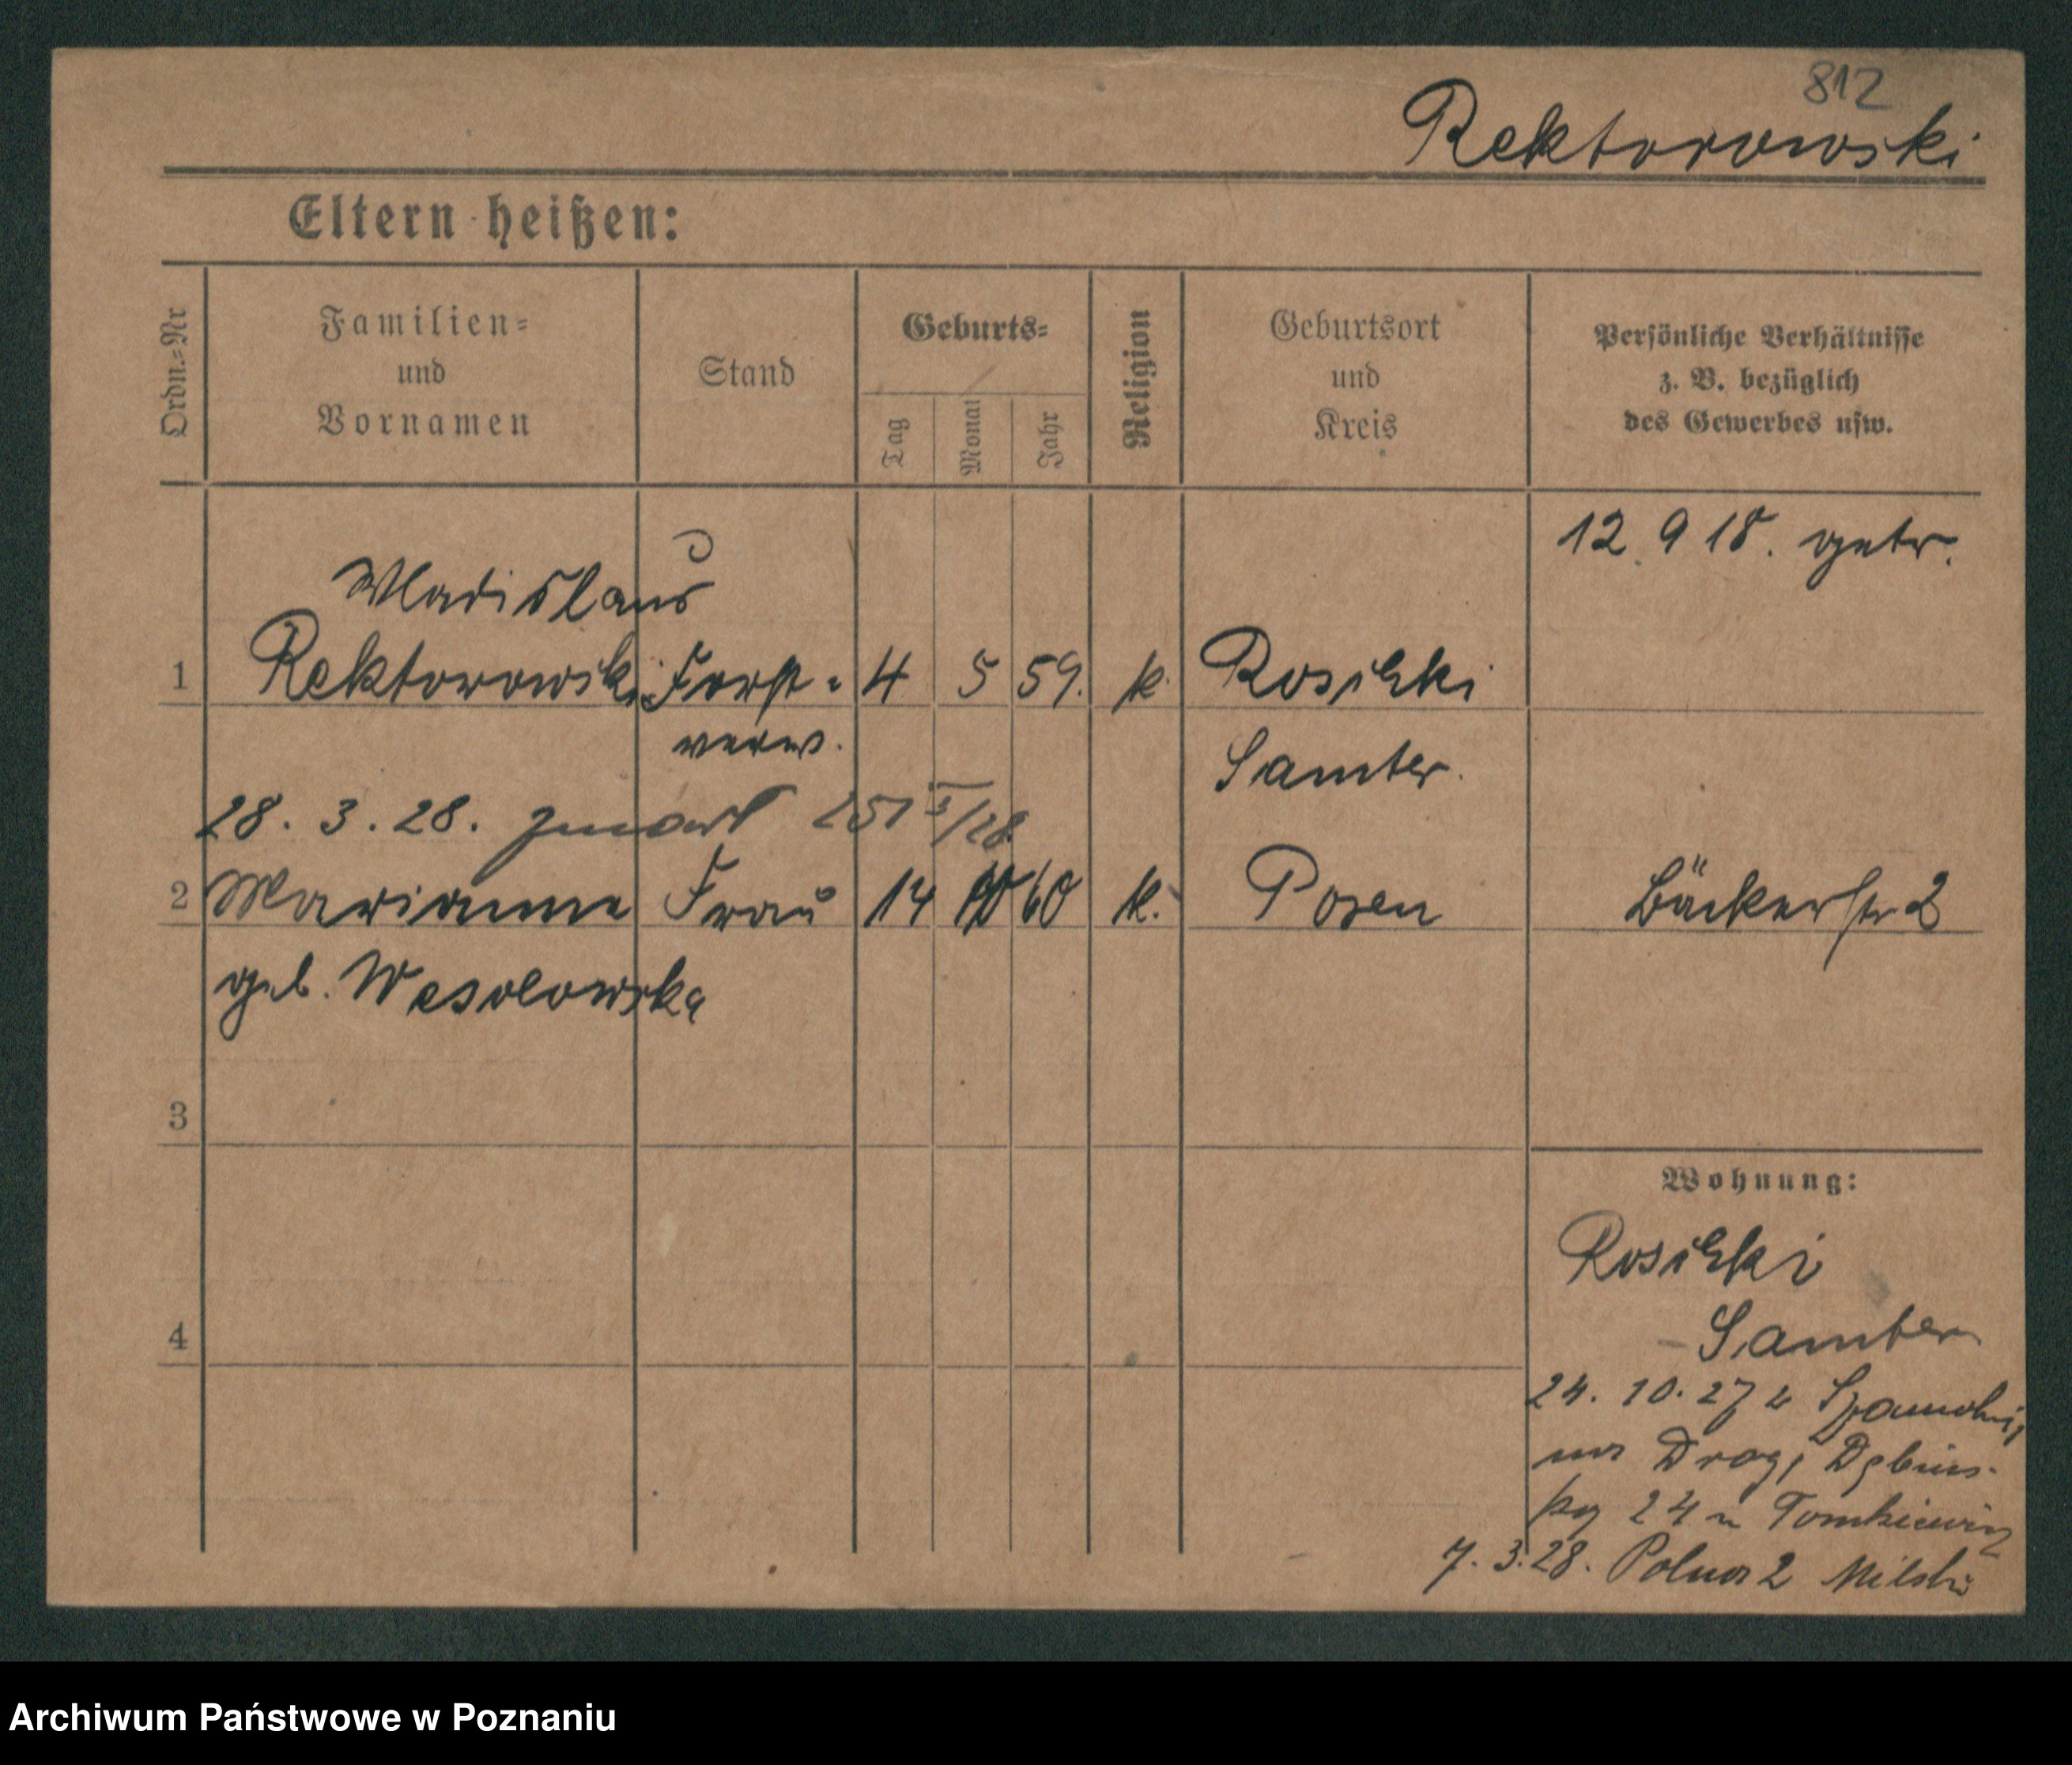 812
Rektorowski
Eltern heißen:
Ordn.-Nr
Familien-
und
Vornamen
Stand
Geburts-
Tag
Monat
Jahr
Religion
Geburtsort
und
Kreis
Persönliche Verhältnisse
z. B. bezüglich
des Gewerbes usw.
12. 9 18. getr.
Wladislaus
1 Rektorowski Forst- 4 5 59. k. Rositzki
verw. Samter.
28. 3. 28. zmarł 251 /28.
2 Marianna Frau 14 60 k. Posen Bäckerstr 2
geb. Wesolowska
3
Wohnung:
Rositzki
Samter
4
24. 10. 27 z
24 u Tomkiewicz
7. 3. 28. Polna 2
Archiwum Państwowe w Poznaniu